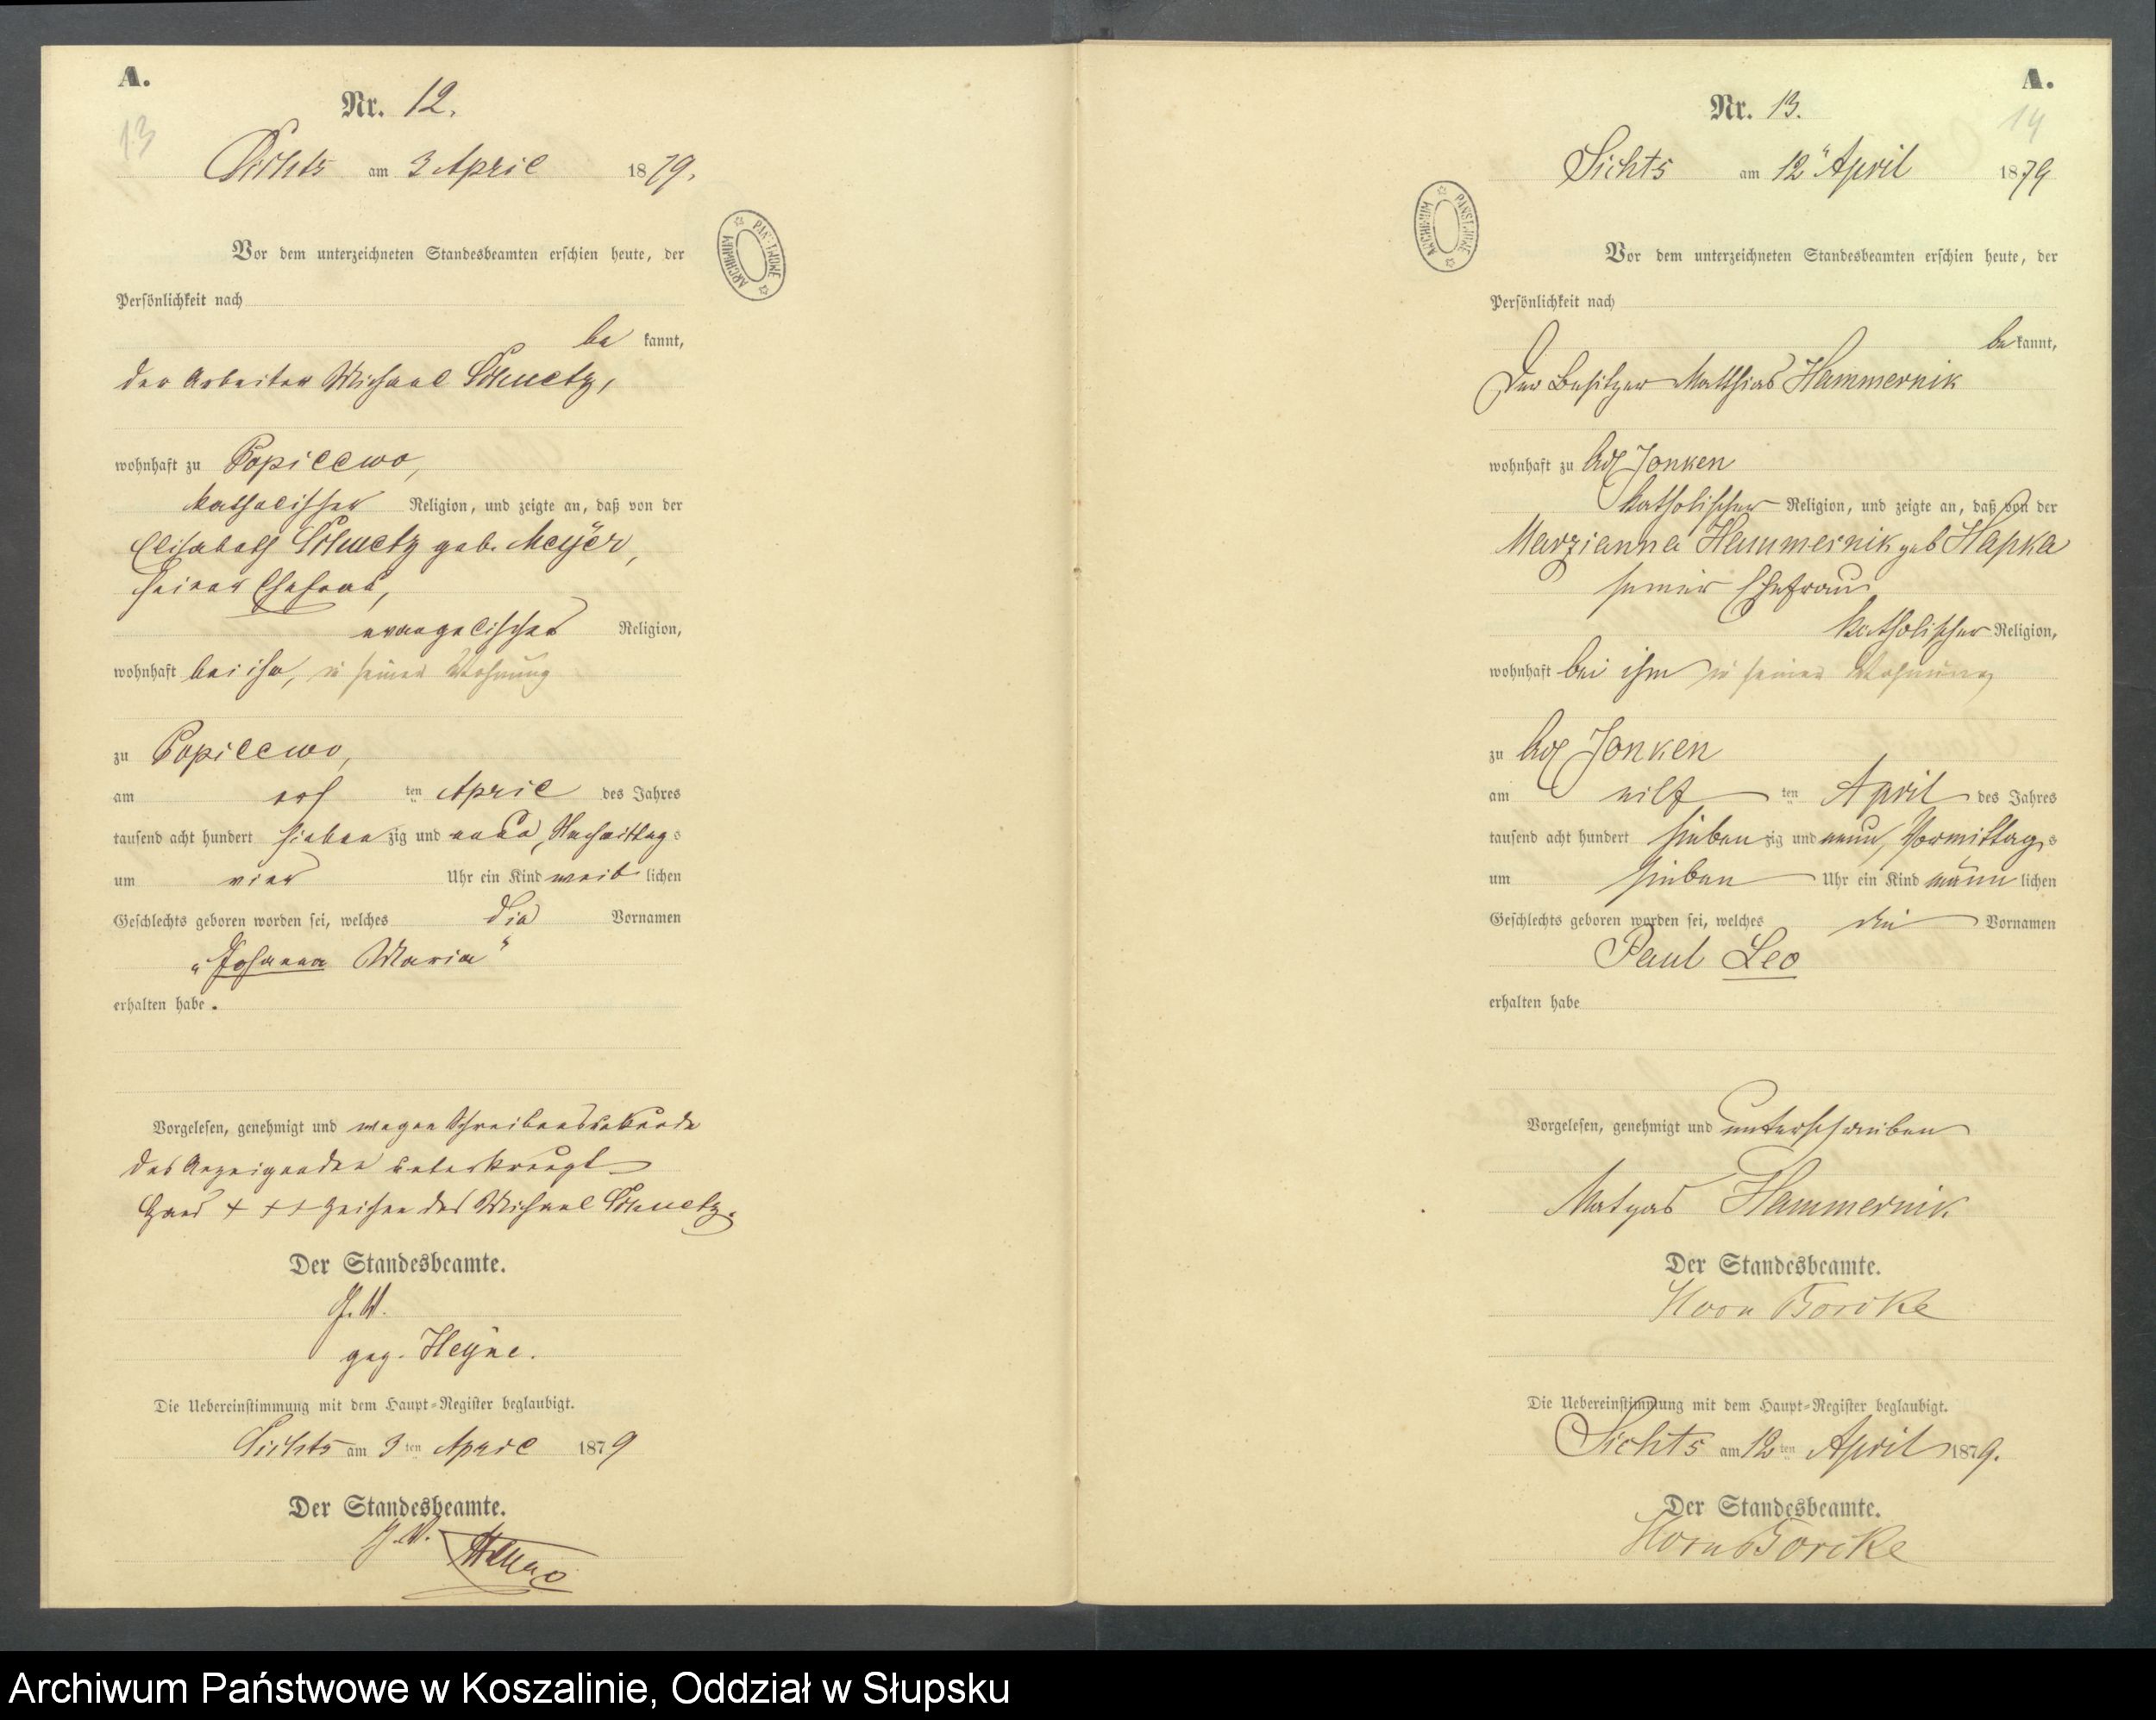 A.
13
Nr. 12.
Sichts am 3 April 1879.
Vor dem unterzeichneten Standesbeamten erschien heute, der
Persönlichkeit nach
be kannt,
der Arbeiter Michael
wohnhaft zu Popiellewo,
katholischer Religion, und zeigte an, daß von der
Elisabeth geb. Meyer,
seiner Ehefrau,
evangelischer Religion,
wohnhaft bei ihm, in seiner Wohnung
zu
am ten April des Jahres
tausend acht hundert sieben zig und neun, Nachmittags
um vier Uhr ein Kind weib lichen
Geschlechts geboren worden sei, welches die Vornamen
„Johanna Maria"
erhalten habe.
Vorgelesen, genehmigt und wegen Schreibensunkunde
des Anzeigenden unterkreuzt
Hand + + + Zeichen des Michael
Der Standesbeamte.
J. V.
gez. Heyne.
Die Uebereinstimmung mit dem Haupt-Register beglaubigt.
Sichts am 3 ten April 1879
Der Standesbeamte.
J. V. Heyne
ARCHIWUM PAŃSTWOWE
A.
14
Nr. 13.
Sichts am 12 April 1879
Vor dem unterzeichneten Standesbeamten erschien heute, der
Persönlichkeit nach
be kannt,
Der Besitzer Matthias Hammernik
wohnhaft zu Adl Jonken
katholischer Religion, und zeigte an, daß von der
Marzianna Hammernik geb Hapka
seiner Ehefrau
katholischer Religion,
wohnhaft bei ihm in seiner Wohnung
zu Adl Jonken
am eilf ten April des Jahres
tausend acht hundert sieben zig und neun, Vormittags
um sieben Uhr ein Kind männ lichen
Geschlechts geboren worden sei, welches die Vornamen
Paul Leo
erhalten habe
Vorgelesen, genehmigt und unterschrieben
Matyas Hammernik
Der Standesbeamte.
Horn Borcke
Die Uebereinstimmung mit dem Haupt-Register beglaubigt.
Sichts am 12 ten April 1879.
Der Standesbeamte.
Horn Borcke
ARCHIWUM PAŃSTWOWE
Archiwum Państwowe w Koszalinie, Oddział w Słupsku